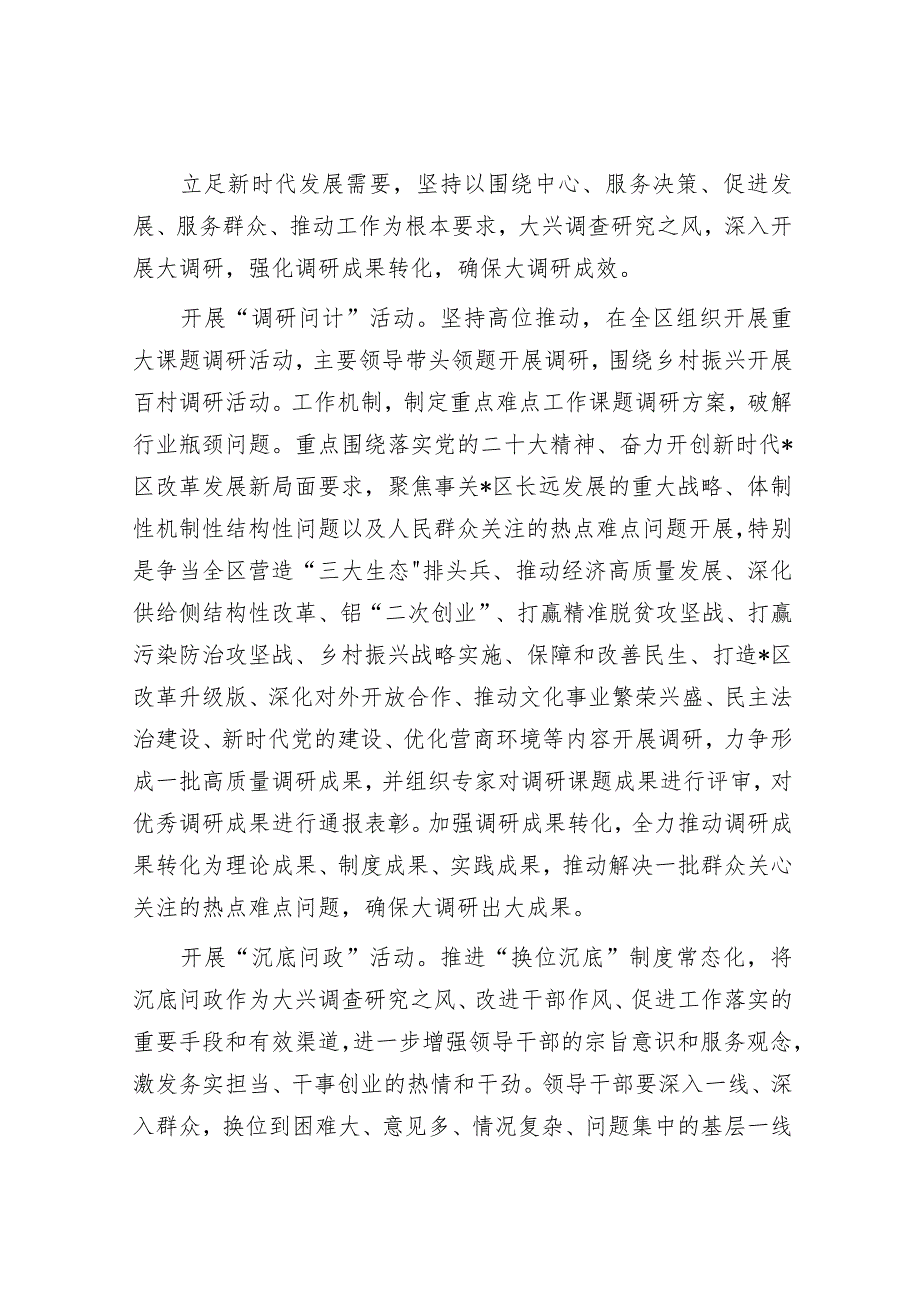 立足新时代发展需要，坚持以围绕中心、服务决策、促进发
展、服务群众、推动工作为根本要求，大兴调查研究之风，深入开
展大调研，强化调研成果转化，确保大调研成效。
开展“调研问计”活动。坚持高位推动，在全区组织开展重
大课题调研活动，主要领导带头领题开展调研，围绕乡村振兴开展
百村调研活动。工作机制，制定重点难点工作课题调研方案，破解
行业瓶颈问题。重点围绕落实党的二十大精神、奋力开创新时代*
区改革发展新局面要求，聚焦事关*区长远发展的重大战略、体制
性机制性结构性问题以及人民群众关注的热点难点问题开展，特别
是争当全区营造“三大生态"排头兵、推动经济高质量发展、深化
供给侧结构性改革、铝“二次创业”、打赢精准脱贫攻坚战、打赢
污染防治攻坚战、乡村振兴战略实施、保障和改善民生、打造*区
改革升级版、深化对外开放合作、推动文化事业繁荣兴盛、民主法
治建设、新时代党的建设、优化营商环境等内容开展调研，力争形
成一批高质量调研成果，并组织专家对调研课题成果进行评审，对
优秀调研成果进行通报表彰。加强调研成果转化，全力推动调研成
果转化为理论成果、制度成果、实践成果，推动解决一批群众关心
关注的热点难点问题，确保大调研出大成果。
开展“沉底问政”活动。推进“换位沉底”制度常态化，将
沉底问政作为大兴调查研究之风、改进干部作风、促进工作落实的
重要手段和有效渠道，进一步增强领导干部的宗旨意识和服务观念，
激发务实担当、干事创业的热情和干劲。领导干部要深入一线、深
入群众，换位到困难大、意见多、情况复杂、问题集中的基层一线